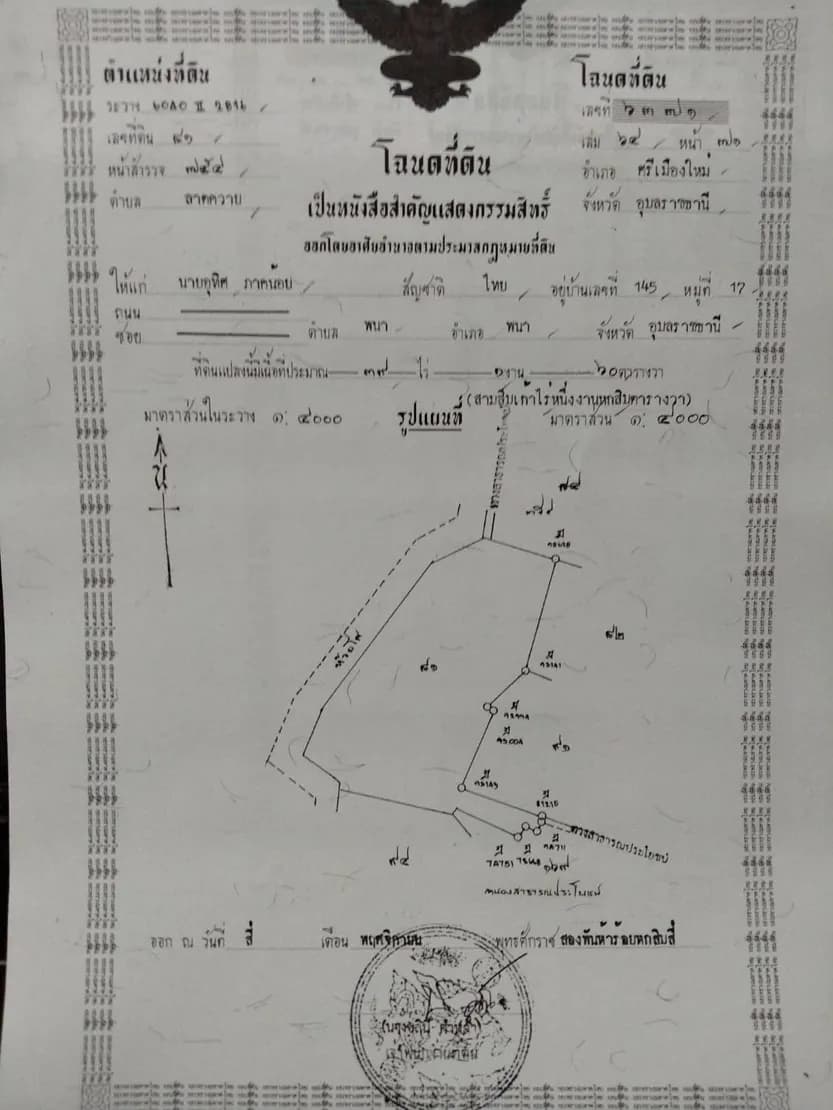 ตำแหน่งที่ดิน
ระวาง ๖๐๘๐ II ๖๘๖๖
เลขที่ดิน ๘๑
หน้าสำรวจ ๗๕๔
ตำบล ลาดควาย
โฉนดที่ดิน
เลขที่ ๖๓๗๑
เล่ม ๖๔ หน้า ๗๑
อำเภอ ศรีเมืองใหม่
จังหวัด อุบลราชธานี
โฉนดที่ดิน
เป็นหนังสือสำคัญแสดงกรรมสิทธิ์
ออกโดยอาศัยอำนาจตามประมวลกฎหมายที่ดิน
ให้แก่ นายอุทิศ ภาคน้อย สัญชาติ ไทย อยู่บ้านเลขที่ 145 หมู่ที่ 17
ถนน
ซอย ตำบล พนา อำเภอ พนา จังหวัด อุบลราชธานี
ที่ดินแปลงนี้มีเนื้อที่ประมาณ ๓๙ ไร่ ๑ งาน ๖๐ ตารางวา
(สามสิบเก้าไร่หนึ่งงานหกสิบตารางวา)
มาตราส่วนในระวาง ๑: ๔๐๐๐ รูปแผนที่ มาตราส่วน ๑: ๔๐๐๐
น
ทางสาธารณประโยชน์
๗๔
๘๒
๘๑
๙๑
ทางสาธารณประโยชน์
๙๔
๑๖๙
หนองสาธารณประโยชน์
ออก ณ วันที่ สี่ เดือน พฤศจิกายน พุทธศักราช สองพันห้าร้อยหกสิบสี่
เจ้าพนักงานที่ดิน